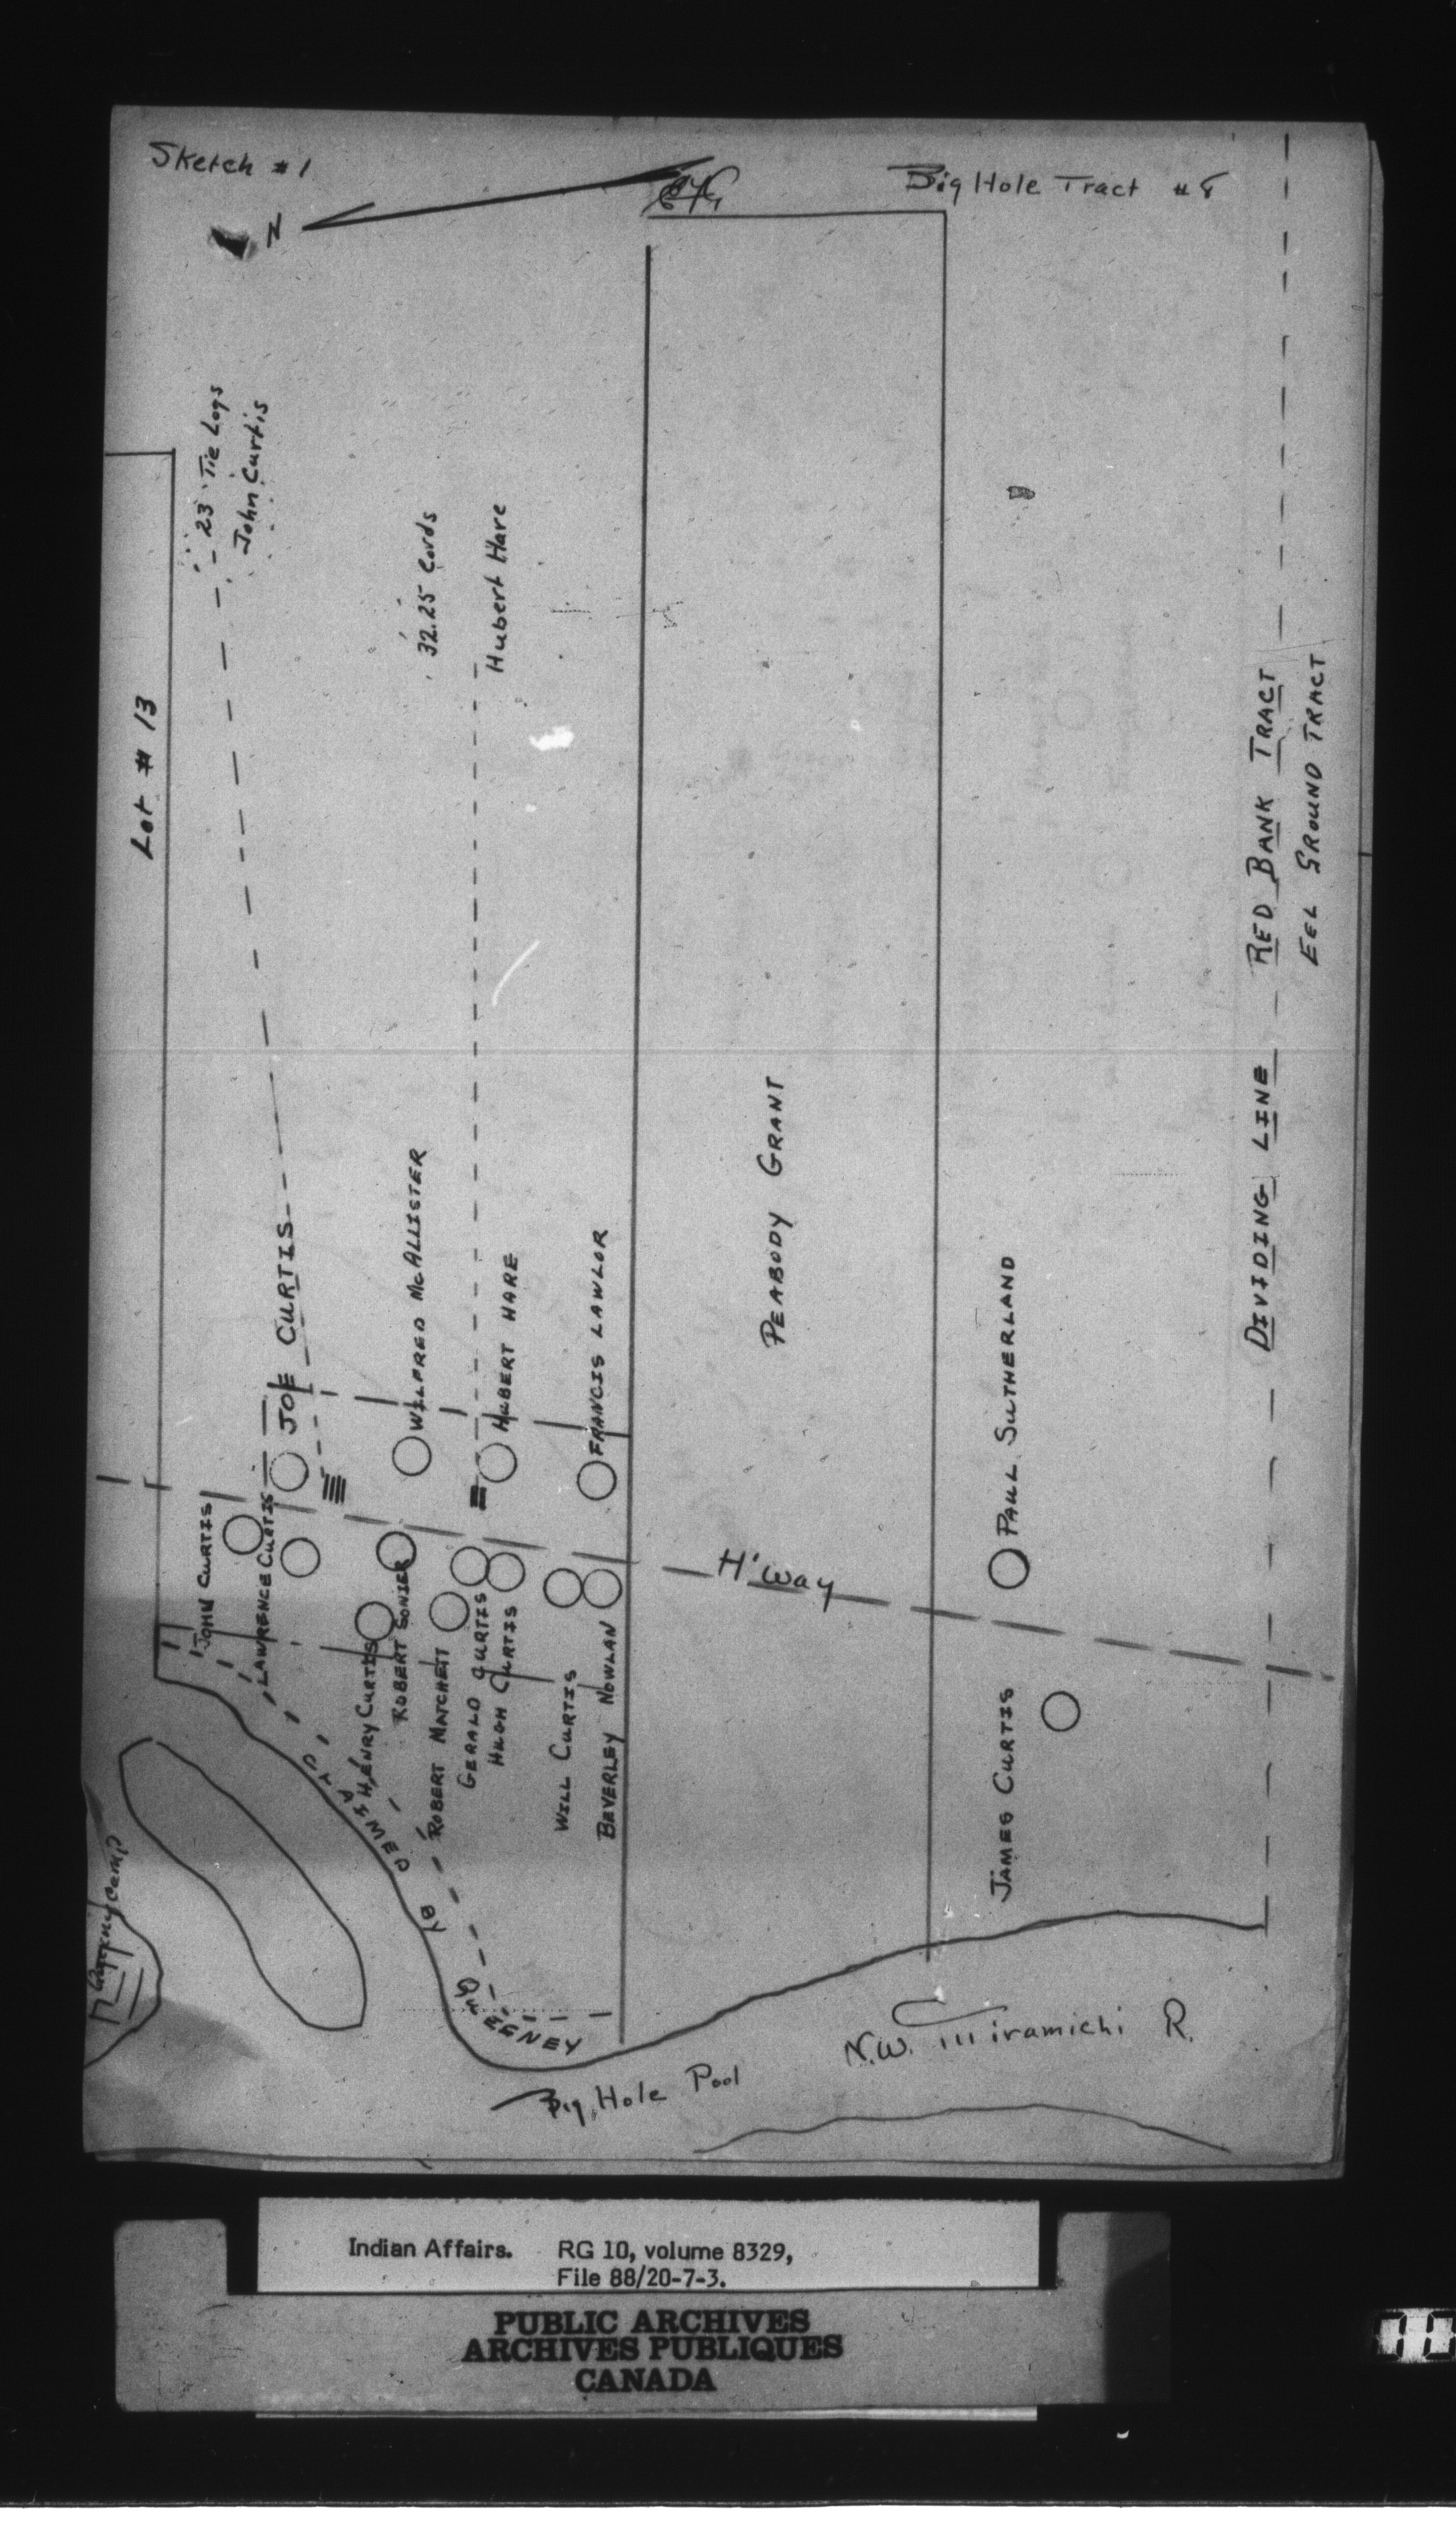 Sketch #1
Big Hole Tract #8
N
23 Tie Logs
John Curtis
32.25 Cords
Hubert Hare
Lot # 13
RED BANK TRACT
EEL GROUND TRACT
DIVIDING LINE
PEABODY GRANT
JOE CURTIS
WILFRED McALLISTER
HUBERT HARE
FRANCIS LAWLOR
PAUL SUTHERLAND
H'way
JOHN CURTIS
LAWRENCE CURTIS
HENRY CURTIS
ROBERT SONIER
ROBERT MATCHETT
GERALD CURTIS
HUGH CURTIS
WILL CURTIS
BEVERLEY NOWLAN
JAMES CURTIS
CLAIMED
BY
SWEENEY
Camp
Big Hole Pool
N.W. Miramichi R.
Indian Affairs. RG 10, volume 8329,
File 88/20-7-3.
PUBLIC ARCHIVES
ARCHIVES PUBLIQUES
CANADA